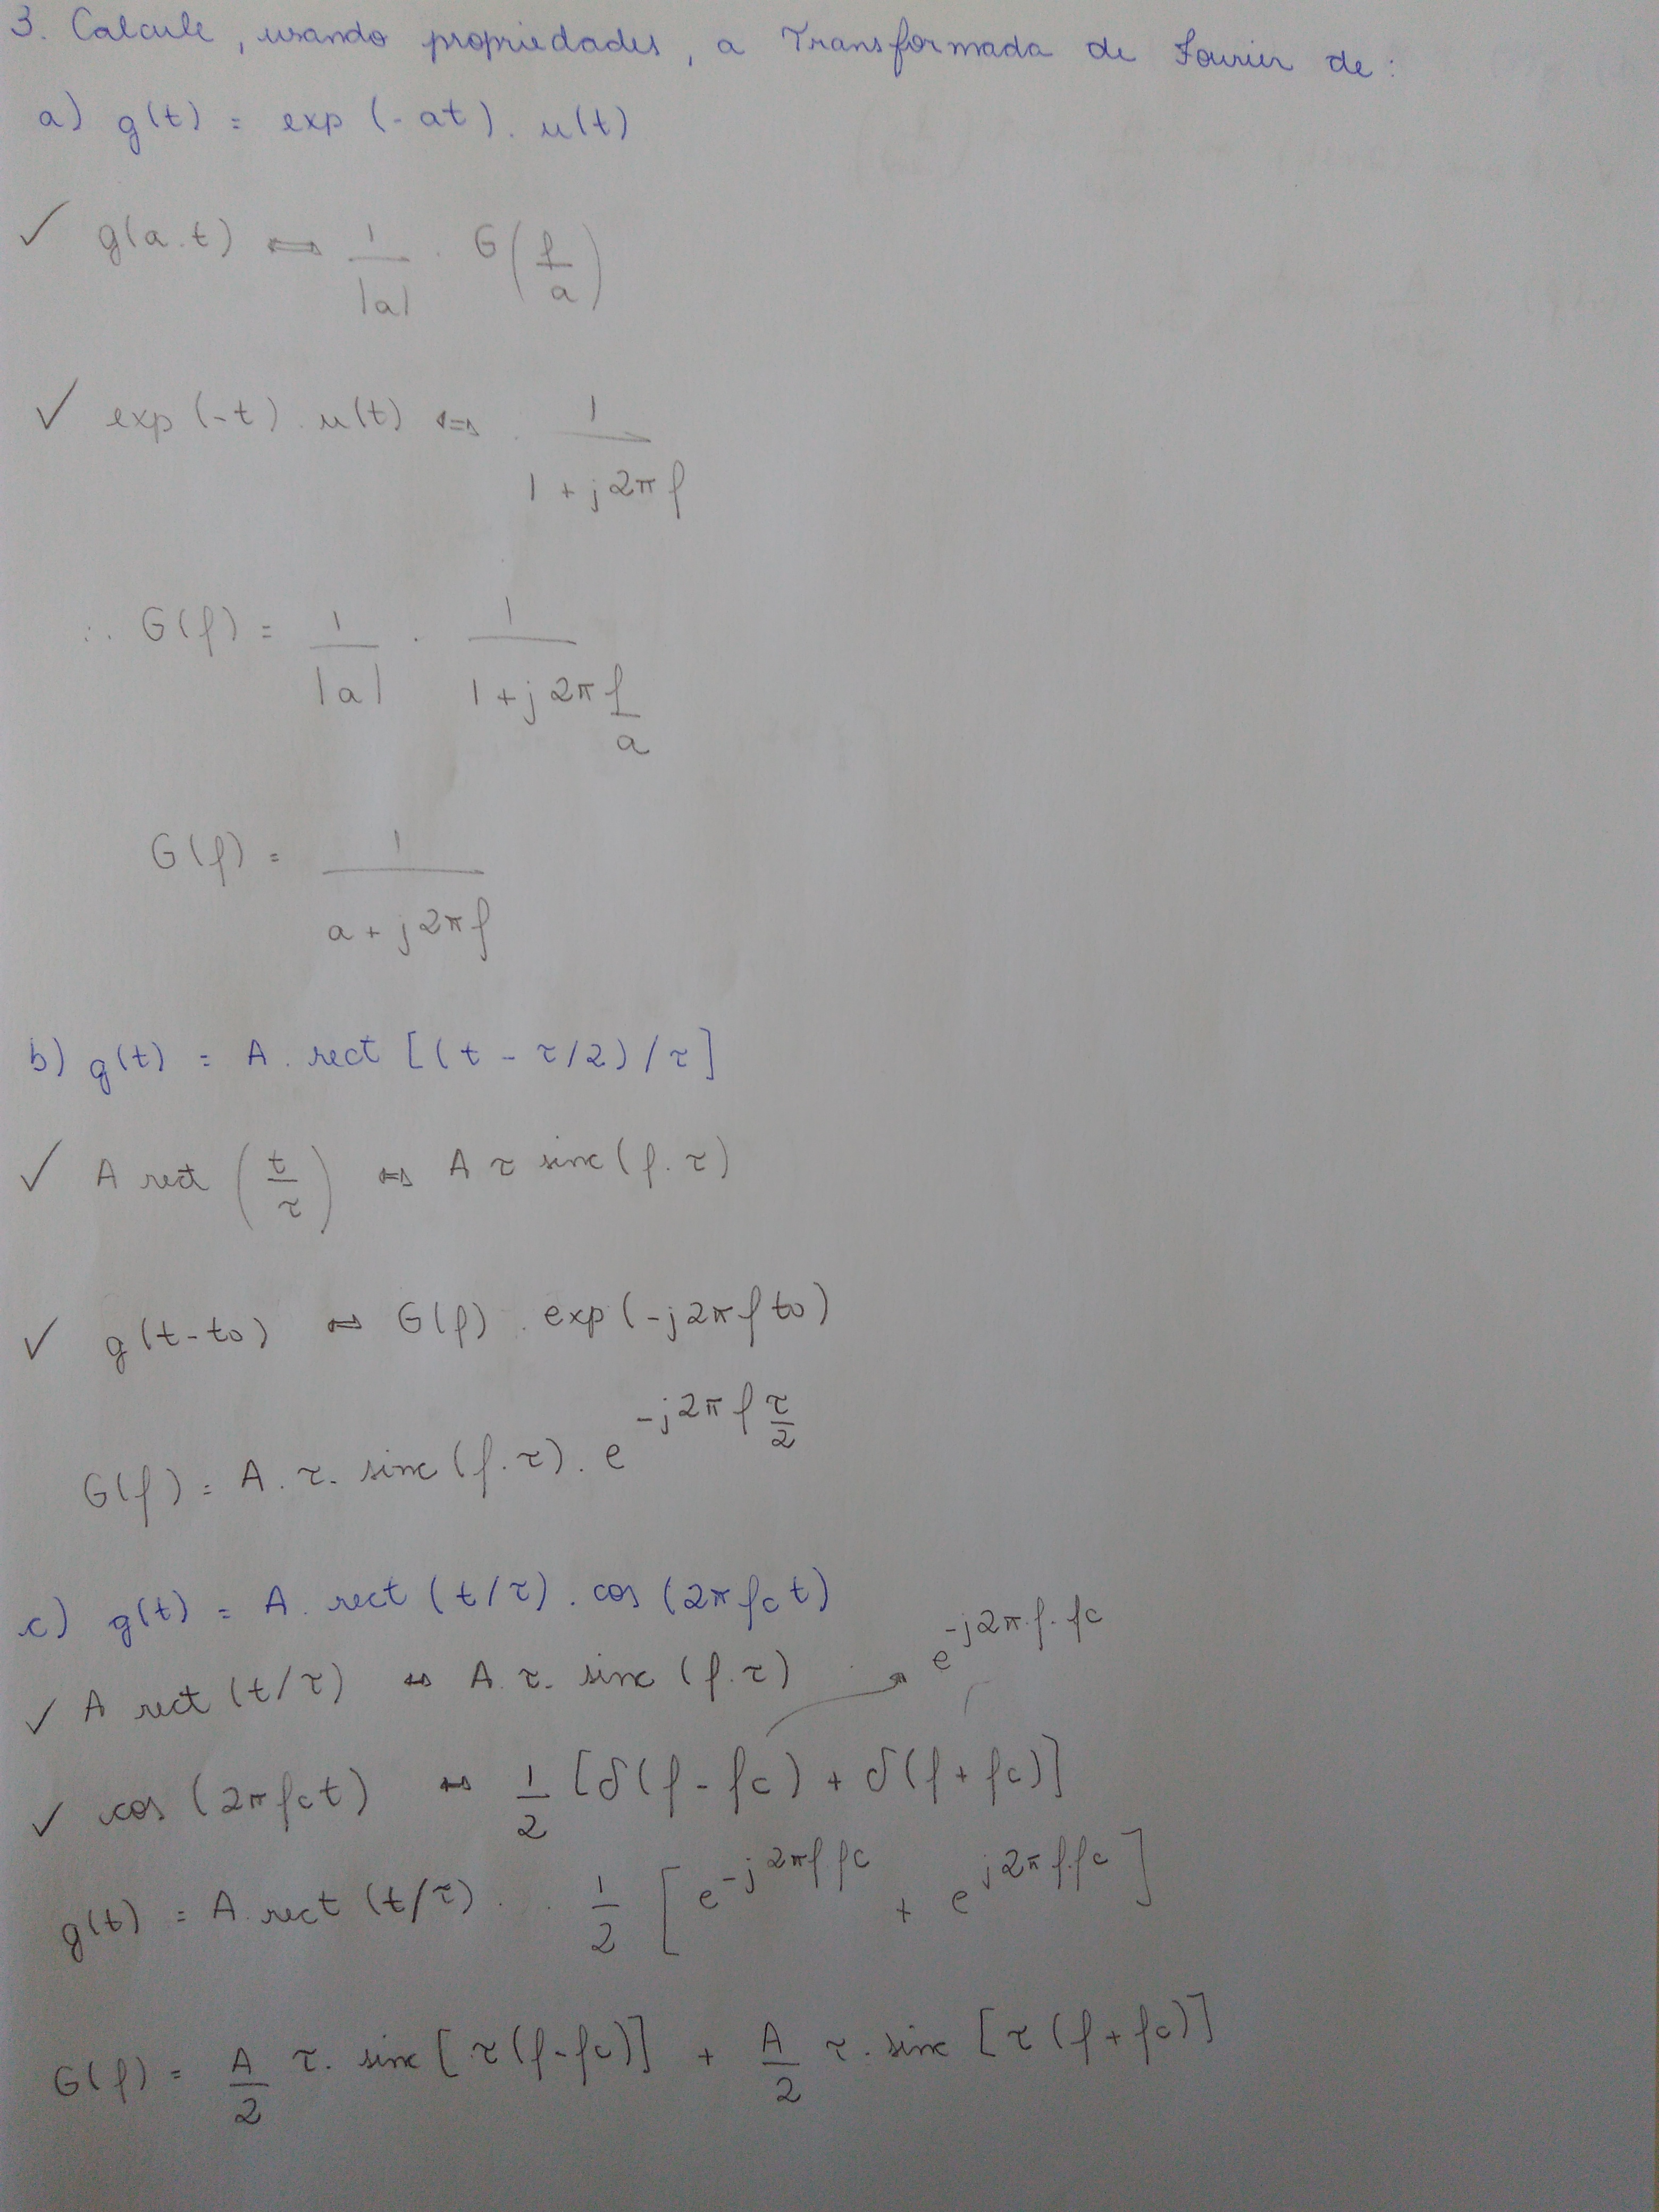 3. Calcule, usando propriedades, a Transformada de Fourier de:
a) g(t) = exp (-at). u(t)
✓ g(a.t) ⟺ 1/|a| . G(f/a)
✓ exp (-t). u(t) ⟺ 1/(1 + j2πf)
∴ G(f) = 1/|a| . 1/(1 + j2π f/a)
G(f) = 1/(a + j2πf)
b) g(t) = A. rect [(t - τ/2) / τ]
✓ A rect (t/τ) ⟺ A τ sinc (f.τ)
✓ g(t-to) ⟺ G(f). exp(-j2πf to)
G(f) = A. τ. sinc (f.τ). e^(-j2πf τ/2)
c) g(t) = A. rect (t/τ). cos (2πfct)
✓ A rect (t/τ) ⟺ A. τ. sinc (f.τ) → e^(-j2π.f.fc)
✓ cos (2πfct) ⟺ 1/2 [δ(f - fc) + δ(f + fc)]
g(t) = A. rect (t/τ) . . 1/2 [e^(-j2πf.fc) + e^(j2πf.fc)]
G(f) = A/2 τ. sinc [τ(f-fc)] + A/2 τ. sinc [τ(f+fc)]